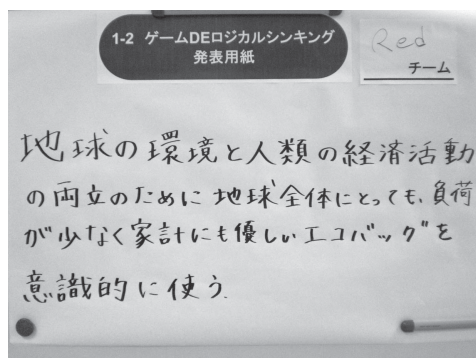 1-2 ゲームDEロジカルシンキング
発表用紙
Red
チーム
地球の環境と人類の経済活動
の両立のために地球全体にとっても、負荷
が少なく家計にも優しいエコバッグを
意識的に使う.